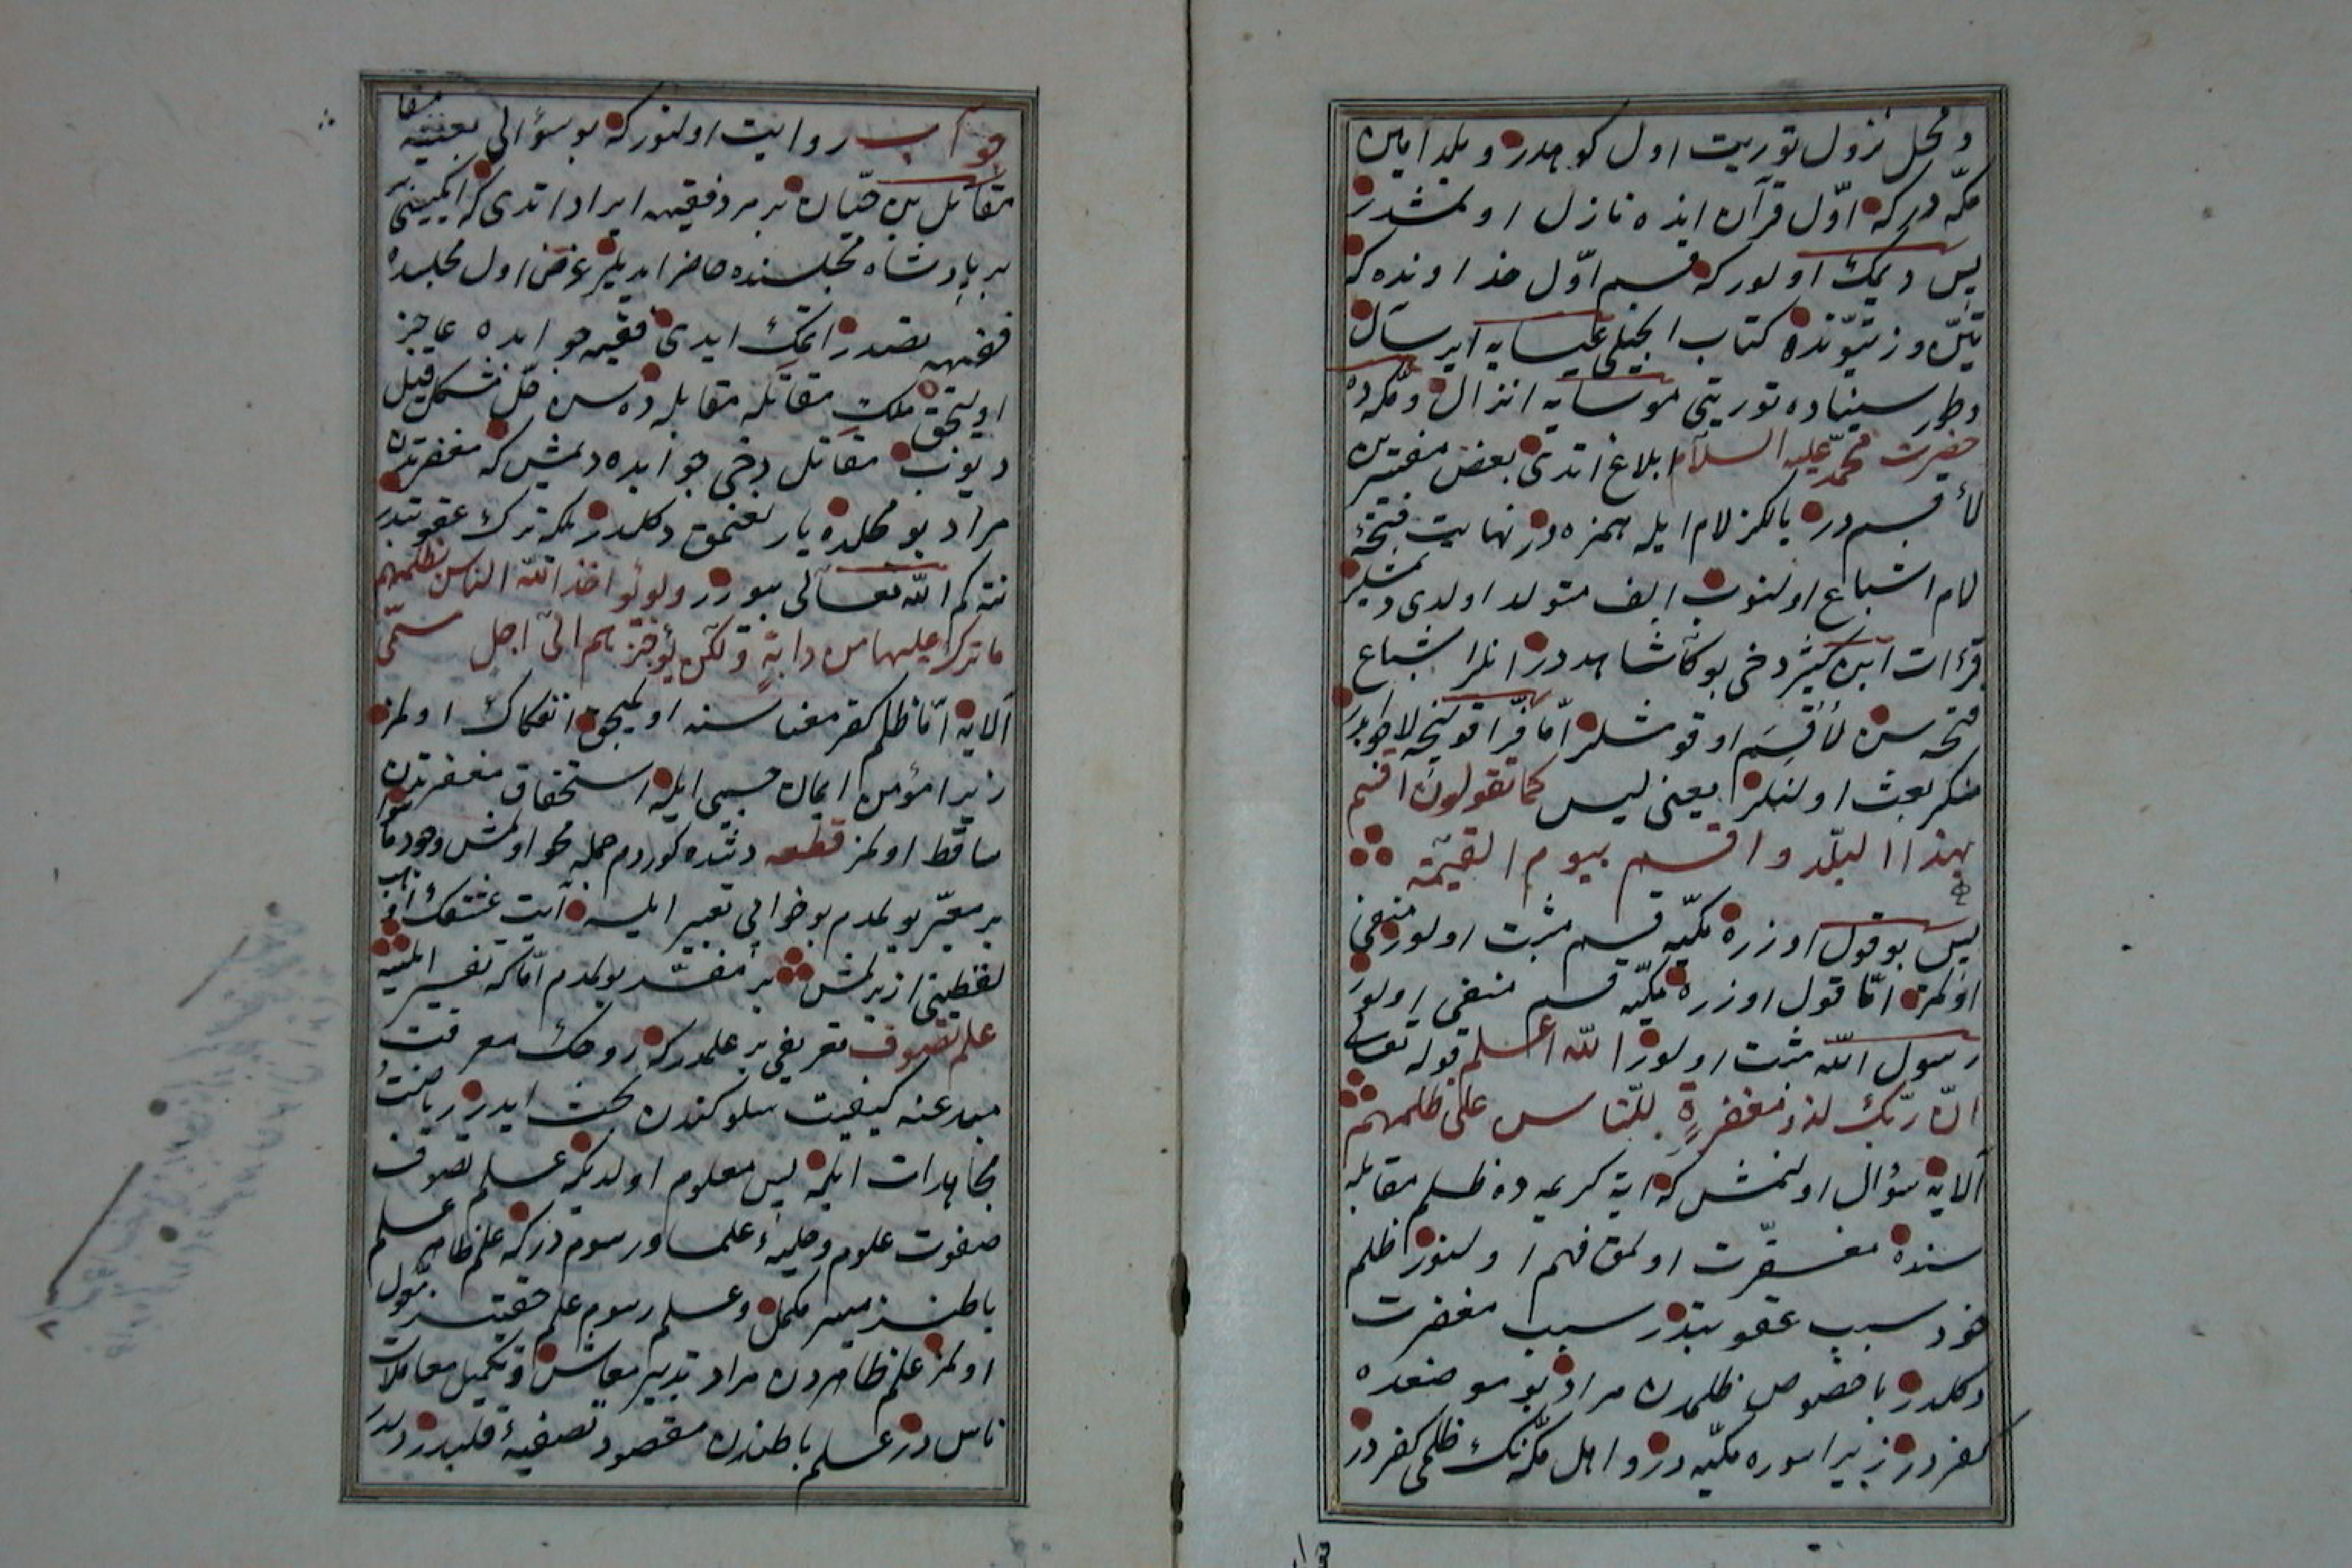 و محل نزول توریت اول کوهدر و بلد امین
مکّه در که اوّل قرآن انده نازل اولمشدر
پس دیمک اولور که قسم اوّل خداونده که
تین و زیتونده کتاب انجیلی عیسایه ایرسال
و طور سیناده توریتی موسایه انزال و مکّه ده
حضرت محمّد علیه السلام ابلاغ اتدی بعض مفسّرین
لأقسم در یالکز لام ایله همزه در نهایت فتحهٔ
لام اشباع اولنوب الف متولد اولدی دیمشلر
قرءات ابن کثیر دخی بوکا شاهددر انلر اشباع
فتحه سز لأُقسِمُ اوقومشلر امّا فرّا قولنجه لا جوابدر
منکر بعث اولنلره یعنی لیس کما تقولون اقسم
بهذا البلد و اقسم بیوم القیمة
پس بو قول اوزره مکّیه قسم مثبت اولور منفی
اولمز امّا قول اوزره مکّیه قسم منفی اولور
رسول الله مثبت اولور الله اعلم قوله تعالی
انّ ربّک لذو مغفرةٍ للنّاس علی ظلمهم
الایه سؤال اولنمش که ایة کریمه ده ظلم مقابله
سنده مغفرت اولمق فهم اولنور ظلم
خود سبب عقوبتدر سبب مغفرت
دکلدر باخصوص ظلمدن مراد بو موضعده
کفردر زیرا سوره مکّیه در و اهل مکّه نک ظلمی کفردر
جواب روایت اولنور که بو سؤالی بعینه
مقاتل بن حیّان بر مرد فقیهه ایراد اتدی که ایکیسی
بر پادشاه مجلسنده حاضر ایدیلر غرض اول مجلسده
فقیهه تصدر اتمک ایدی فقیه جوابده عاجز
اولیجق ملک مقاتله مقابله ده سن حلّ مشکل قیل
دیوب مقاتل دخی جوابده دیمش که مغفرتدن
مراد بو محلده یارلغنمق دکلدر بلکه ترک عقوبتدر
نته کم الله تعالی بیورر ولو یؤاخذ الله الناس بظلمهم
ما ترک علیها من دابة ولکن یؤخرهم الی اجل مسمّی
الایه امّا ظلم کفر معناسنه اولمیجق انفکاک اولمز
زیرا مؤمن ایمان حسبی ایله استحقاق مغفرتدن
ساقط اولمز قطعه دشده کوردم جمله محو اولمش وجود
بر معبّر بولمدم بو خوابی تعبیر ایلیه آیت عشقک
لفظینی ازبرلمش بر مفسّر بولمدم امّا که تفسیر ایلیه
علم تصوف تعریفی بر علمدر که روحک معرفت
مبدعنه کیفیت سلوکندن بحث ایدر ریاضت
مجاهدات ایله پس معلوم اولدیکه علم تصوف
صفوت علوم و حلیهٔ علما و رسومدر که علم ظاهر علم
باطنسز میسر مکمل و علم رسوم علم حقیقتسز مقبول
اولمز علم ظاهردن مراد تدبیر معاش و تکمیل معاملات
ناس در علم باطندن مقصود تصفیهٔ قلبدر